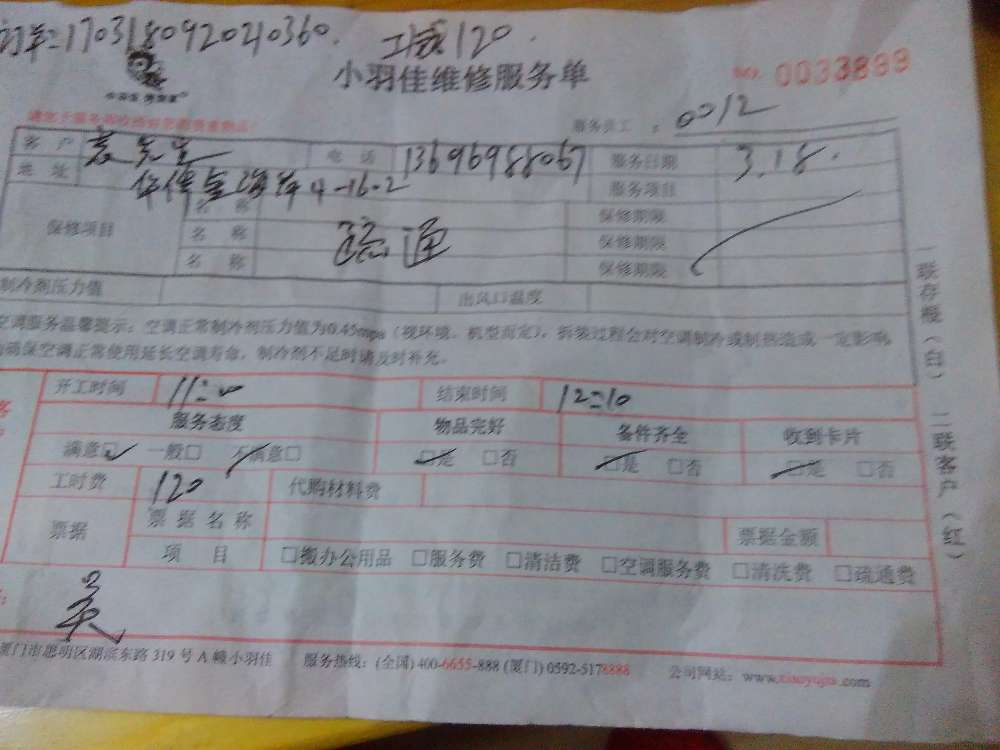 订单:170318092040360. 工费120.
小羽佳维修服务单
NO. 0033899
请您于服务前收检好您的贵重物品!
服务员工: 0012
客户 先生 电话 13696988067 服务日期 3.18.
地址 4-16-2 服务项目
保修项目 名称 疏通 保修期限
名称 保修期限
名称 保修期限
制冷剂压力值 出风口温度
空调服务温馨提示:空调正常制冷剂压力值为0.45mpa(视环境、机型而定),拆装过程会对空调制冷或制热造成一定影响,
确保空调正常使用延长空调寿命,制冷剂不足时请及时补充。
开工时间 11:00 结束时间 12:10
服务态度 物品完好 备件齐全 收到卡片
满意□ 一般□ 不满意□ □是 □否 □是 □否 □是 □否
工时费 120 代购材料费
票据 票据名称 票据金额
项目 □搬办公用品 □服务费 □清洁费 □空调服务费 □清洗费 □疏通费
厦门市思明区湖滨东路 319 号 A 幢小羽佳 服务热线:(全国) 400-6655-888 (厦门) 0592-5178888 公司网站:www.xiaoyujia.com
一联存根(白) 二联客户(红)